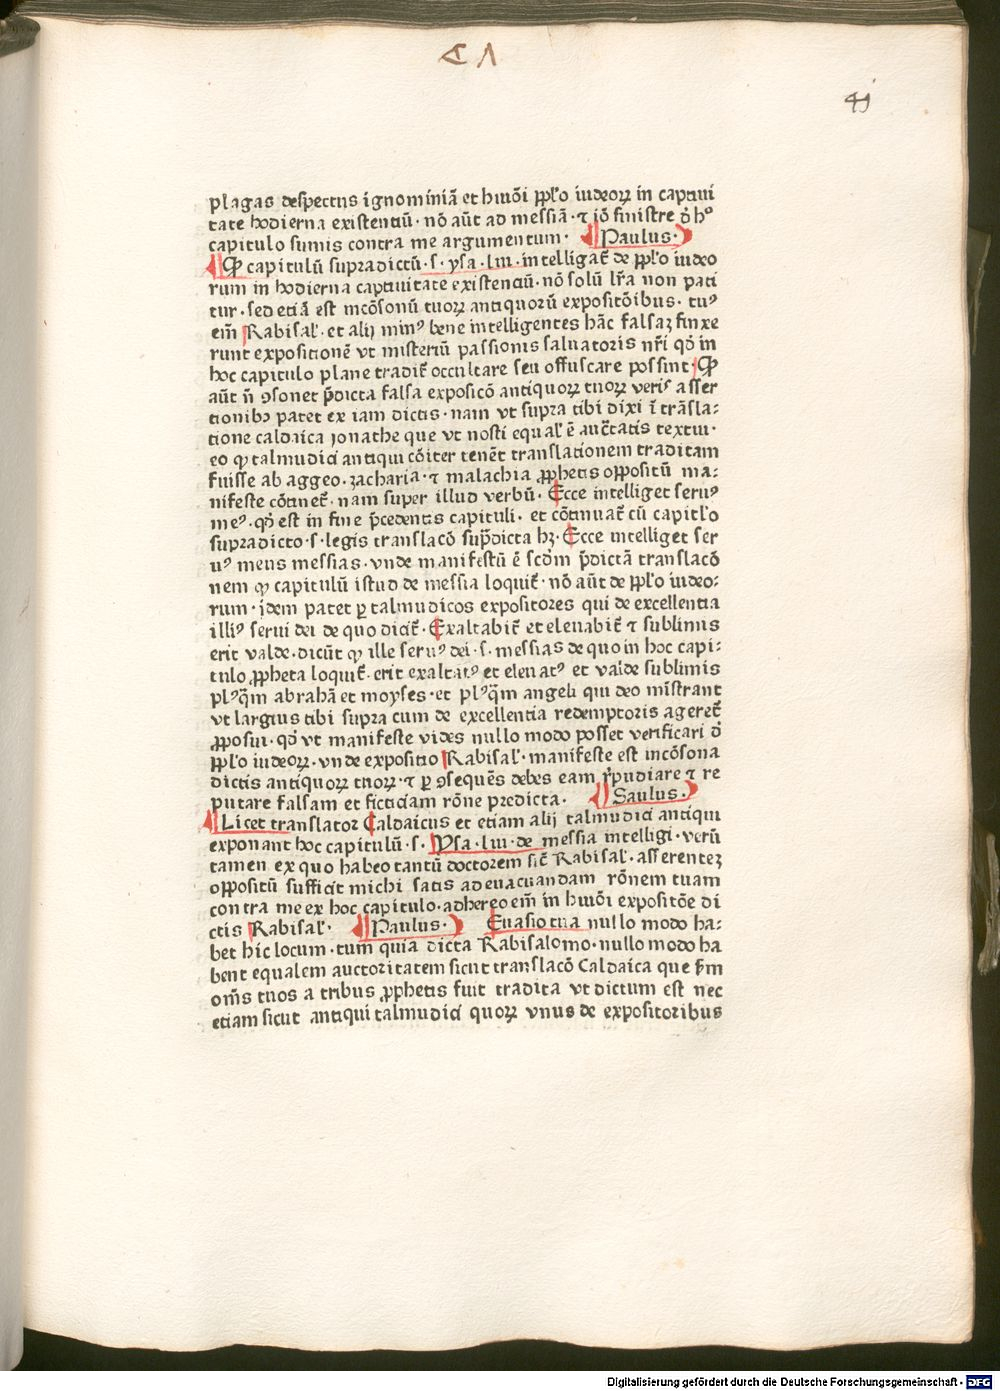 C Λ
41
plagas despectus ignominiā et hmōi ppľo iudeoꝝ in captiui
tate hodierna existentiū · nō aūt ad messiā · ⁊ iō sinistre ꝺ̓ h°
capitulo sumis contra me argumentum · Paulus ·
Ꝙ capitulū supradictū · s · ysa · liii · intelligat̄ de ppľo iudeo
rum in hodierna captiuitate existentiū · nō solū lr̄a non pati
tur · sed etiā est incōsonū tuoꝝ antiquorū expositōibus · tuꝰ
em̄ Rabisaľ · et alij minꝰ bene intelligentes hāc falsaꝫ finxe
runt expositionē vt misteriū passionis saluatoris nr̄i qd̓ in
hoc capitulo plane tradit̄ occultare seu offuscare possint · Ꝙ
aūt n̄ ꝯsonet p̄dicta falsa exposicō antiquoꝝ tuoꝝ veris asser
tionibꝫ patet ex iam dictis · nam vt supra tibi dixi ī trāsla:
tione caldaica jonathe que vt nosti equaľ ē auctātis textui ·
eo ꝙ talmudici antiqui cōiter tenēt translationem traditam
fuisse ab aggeo · zacharia · ⁊ malachia ꝓphetis oppositū ma:
nifeste cōtinet̄ · nam super illud verbū · Ecce intelliget seruꝰ
meꝰ · qd̓ est in fine p̄cedentis capituli · et cōtinuat̄ cū capitľo
supradicto · s · legis translacō sup̄dicta hꝫ · Ecce intelliget ser
uꝰ meus messias · vnde manifestū ē scd̓m p̄dictā translacō
nem ꝙ capitulū istud de messia loquit̄ · nō aūt de ppľo iudeo:
rum · jdem patet ꝑ talmudicos expositores qui de excellentia
illiꝰ serui dei de quo dicit̄ · Exaltabit̄ et eleuabit̄ ⁊ sublimis
erit valde · dicūt ꝙ ille seruꝰ dei · s · messias de quo in hoc capi:
tulo ꝓpheta loquit̄ · erit exaltatꝰ et eleuatꝰ et valde sublimis
plꝰq̄m abrahā et moyses · et plꝰq̄m angeli qui deo mīstrant
vt largius tibi supra cum de excellentia redemptoris ageret̄
ꝓposui · qd̓ vt manifeste vides nullo modo posset verificari ꝺ̓
ppľo iudeoꝝ · vnde expositio Rabisaľ · manifeste est incōsona
dictis antiquoꝝ tuoꝝ · ⁊ ꝑ ꝯsequēs debes eam r̄pudiare ⁊ re
putare falsam et ficticiam rōne predicta · Saulus ·
Licet translator Caldaicus et etiam alij talmudici antiqui
exponant hoc capitulū · s · Ysa · liii · de messia intelligi · verū
tamen ex quo habeo tantū doctorem sic̄ Rabisaľ · asserentez
oppositū sufficit michi satis ad euacuandam rōnem tuam
contra me ex hoc capitulo · adhereo em̄ in hmōi expositōe di
ctis Rabisaľ · Paulus · Euasio tua nullo modo ha:
bet hic locum · tum quia dicta Rabisalomo · nullo modo ha
bent equalem auctoritatem sicut translacō Caldaica que s̄m
om̄s tuos a tribus ꝓphetis fuit tradita vt dictum est nec
etiam sicut antiqui talmudici quoꝝ vnus de expositoribus
Digitalisierung gefördert durch die Deutsche Forschungsgemeinschaft - DFG